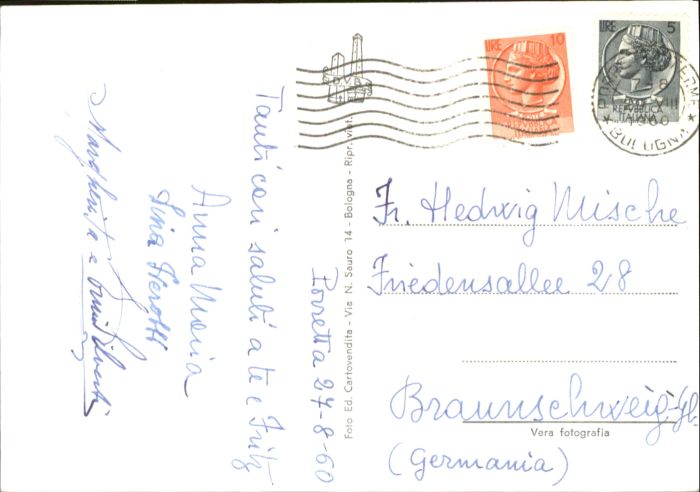 Porretta 27-8-60
Tanti cari saluti a te e Fritz
Anna Maria
Lina
Margherita e
Foto Ed. Cartovendita - Via N. Sauro 14 - Bologna - Ripr. viet.
LIRE 10
LIRE 5
REPVBBLICA
ITALIANA
1960
BOLOGNA
Fr. Hedwig Mische
Friedensallee 28
Braunschweig-Gl.
(Germania)
Vera fotografia